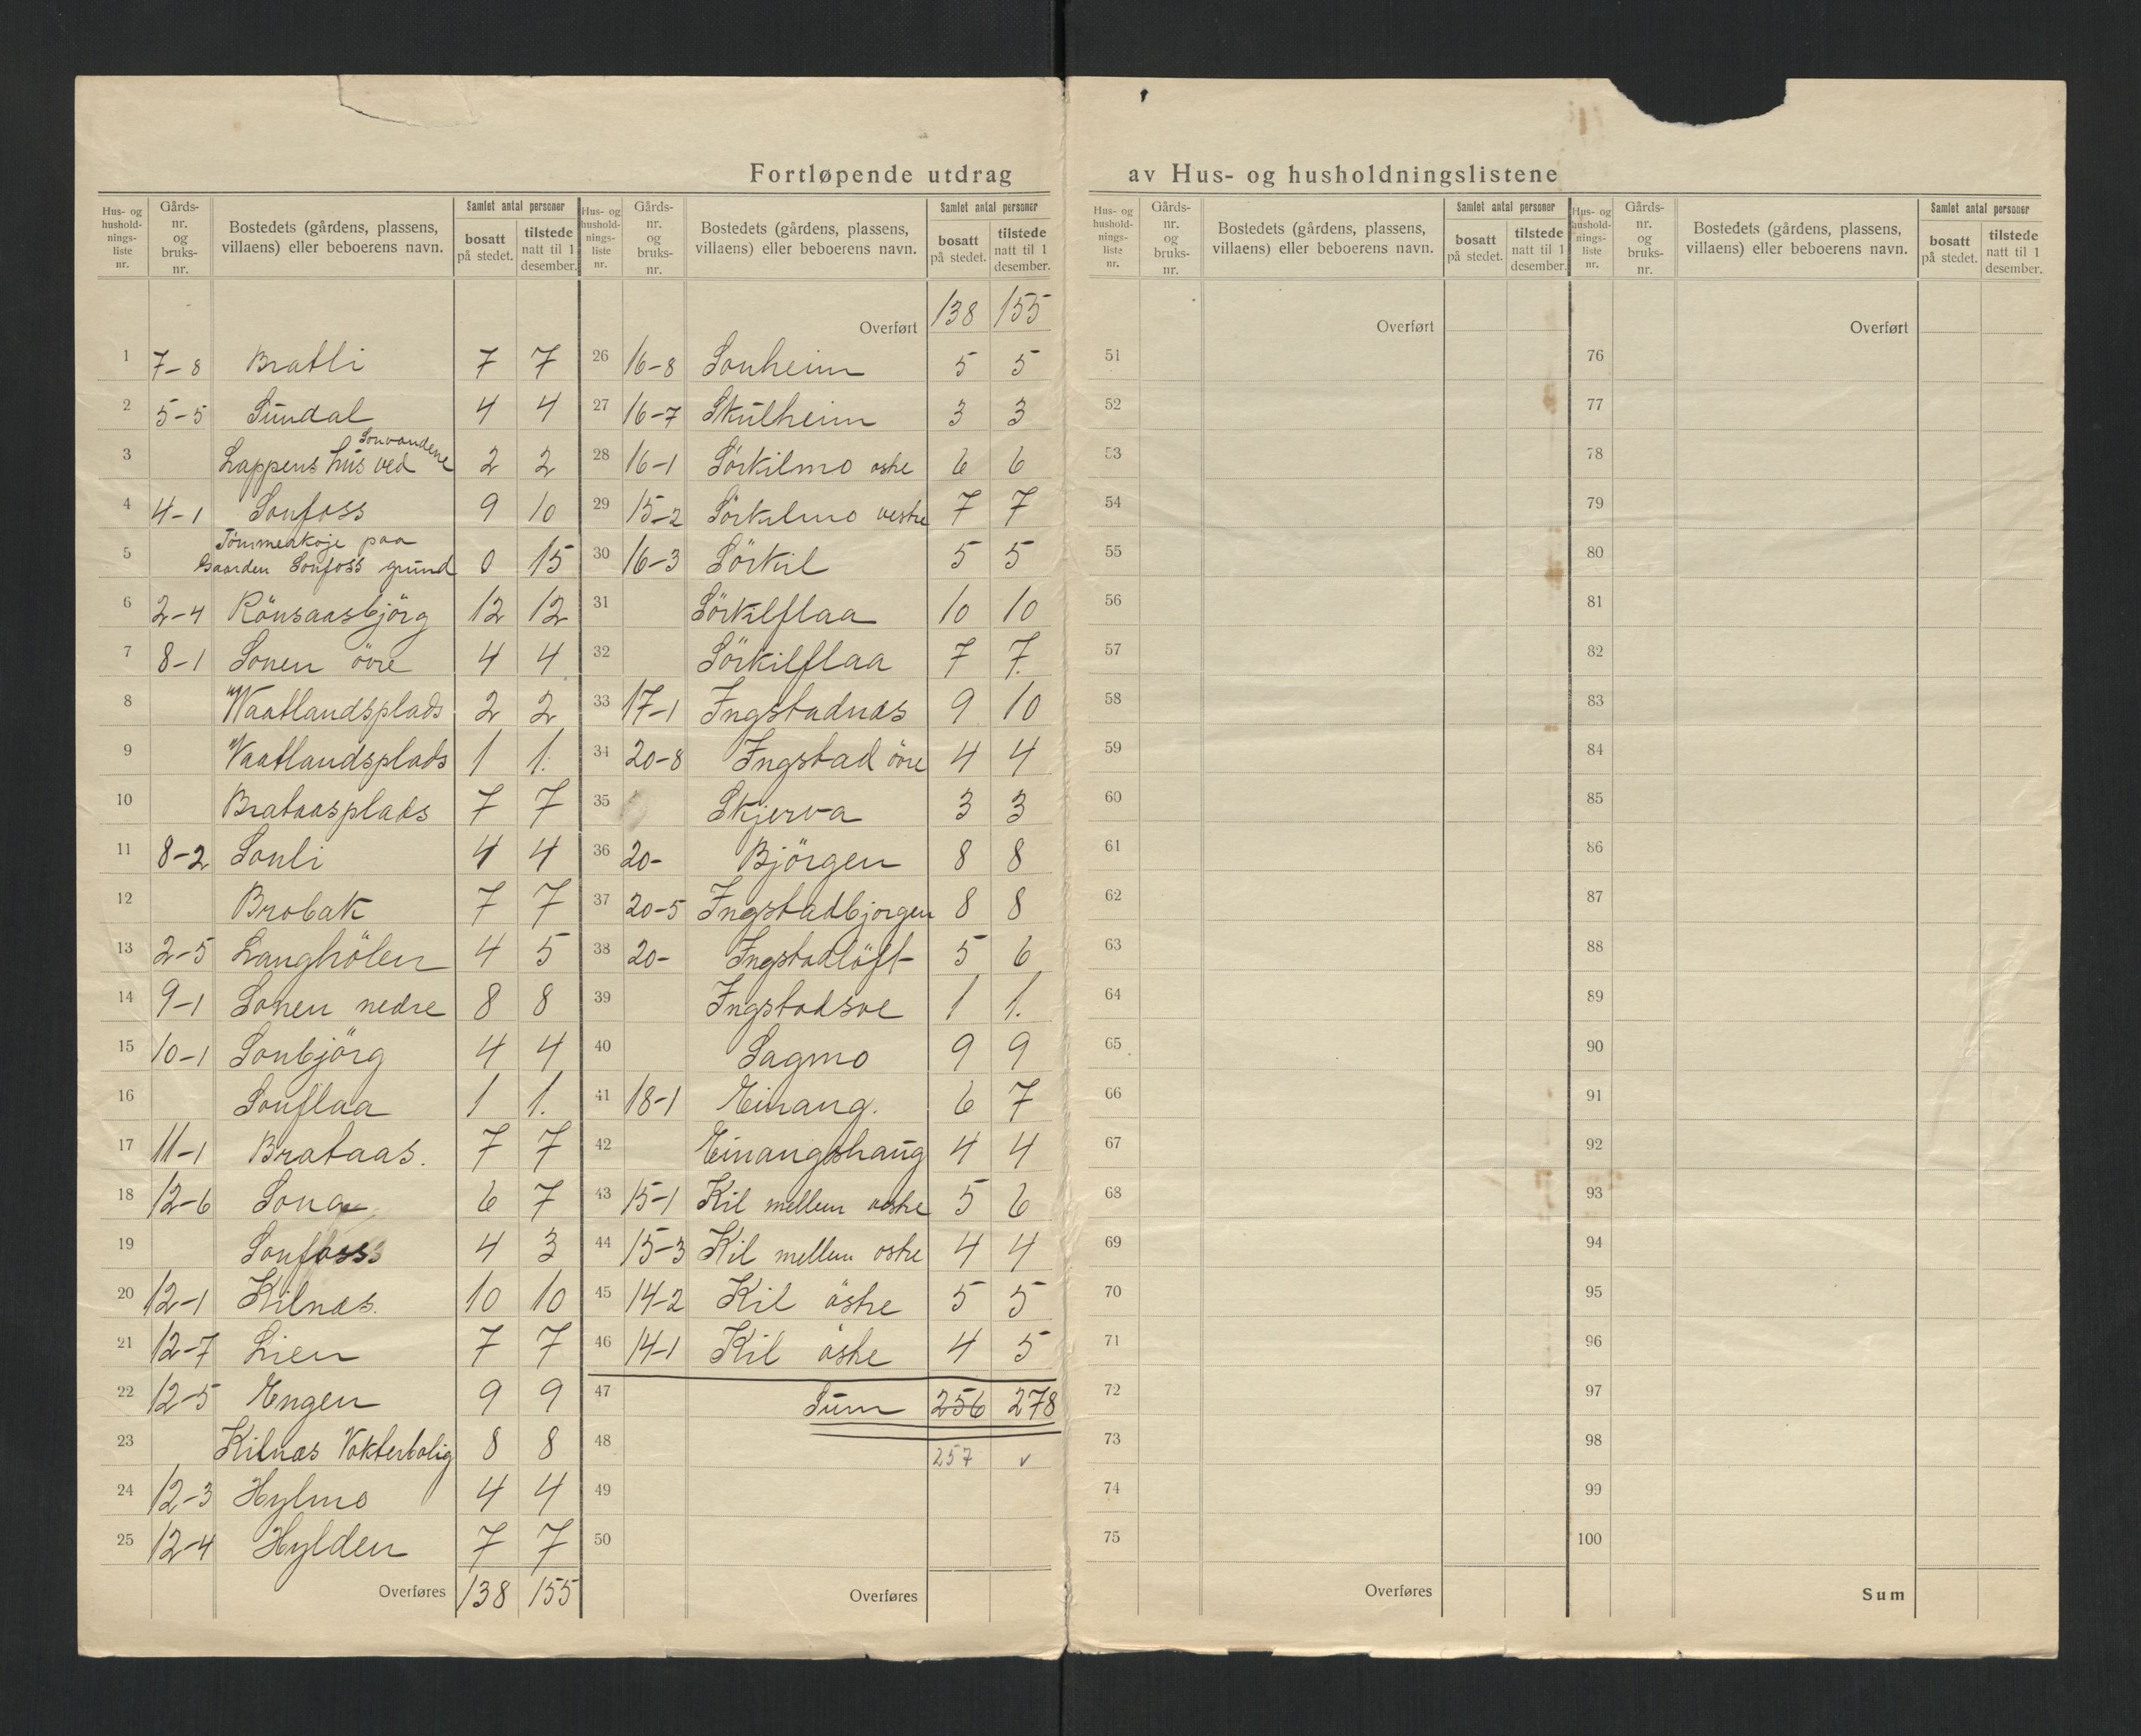 Fortløpende utdrag av Hus- og husholdningslistene
Hus- og hushold-nings-liste nr. | Gårds-nr. og bruks-nr. | Bostedets (gårdens, plassens, villaens) eller beboerens navn. | Samlet antal personer | bosatt på stedet. | tilstede natt til 1 desember.
1 7-8 Bratli 7 7
2 5-5 Sundal 4 4
3 Lappens hus ved Sonvandene 2 2
4 4-1 Sonfoss 9 10
5 Tömmerkoje paa Gaarden Sonfoss grund 0 15
6 2-4 Rönsaasbjörg 12 12
7 8-1 Sonen övre 4 4
8 Vaatlandsplads 2 2
9 Vaatlandsplads 1 1.
10 Brataasplads 7 7
11 8-2 Sonli 4 4
12 Brobak 7 7
13 2-5 Langhölen 4 5
14 9-1 Sonen nedre 8 8
15 10-1 Sonbjörg 4 4
16 Sonflaa 1 1.
17 11-1 Brataas. 7 7
18 12-6 Sona 6 7
19 Sonfoss 4 3
20 12-1 Kilnas. 10 10
21 12-7 Lien 7 7
22 12-5 Engen 9 9
23 Kilnas Vokterbolig 8 8
24 12-3 Hylmo 4 4
25 12-4 Hylden 7 7
Overføres 138 155
Hus- og hushold-nings-liste nr. | Gårds-nr. og bruks-nr. | Bostedets (gårdens, plassens, villaens) eller beboerens navn. | Samlet antal personer | bosatt på stedet. | tilstede natt til 1 desember.
Overført 138 155
26 16-8 Sonheim 5 5
27 16-7 Skulheim 3 3
28 16-1 Sörkilmo ostre 6 6
29 15-2 Sörkilmo vestre 7 7
30 16-3 Sörkil 5 5
31 Sörkilflaa 10 10
32 Sörkilflaa 7 7.
33 17-1 Ingstadnas 9 10
34 20-8 Ingstad övre 4 4
35 Skjerva 3 3
36 20- Björgen 8 8
37 20-5 Ingstadbjorgen 8 8
38 20- Ingstadlöft 5 6
39 Ingstadsve 1 1.
40 Sagmo 9 9
41 18-1 Einang. 6 7
42 Einangshaug 4 4
43 15-1 Kil mellem vestre 5 6
44 15-3 Kil mellem ostre 4 4
45 14-2 Kil östre 5 5
46 14-1 Kil östre 4 5
47 Sum 256 278
48 257 v
49
50
Overføres
Hus- og hushold-nings-liste nr. | Gårds-nr. og bruks-nr. | Bostedets (gårdens, plassens, villaens) eller beboerens navn. | Samlet antal personer | bosatt på stedet. | tilstede natt til 1 desember.
Overført
51
52
53
54
55
56
57
58
59
60
61
62
63
64
65
66
67
68
69
70
71
72
73
74
75
Overføres
Hus- og hushold-nings-liste nr. | Gårds-nr. og bruks-nr. | Bostedets (gårdens, plassens, villaens) eller beboerens navn. | Samlet antal personer | bosatt på stedet. | tilstede natt til 1 desember.
Overført
76
77
78
79
80
81
82
83
84
85
86
87
88
89
90
91
92
93
94
95
96
97
98
99
100
Sum